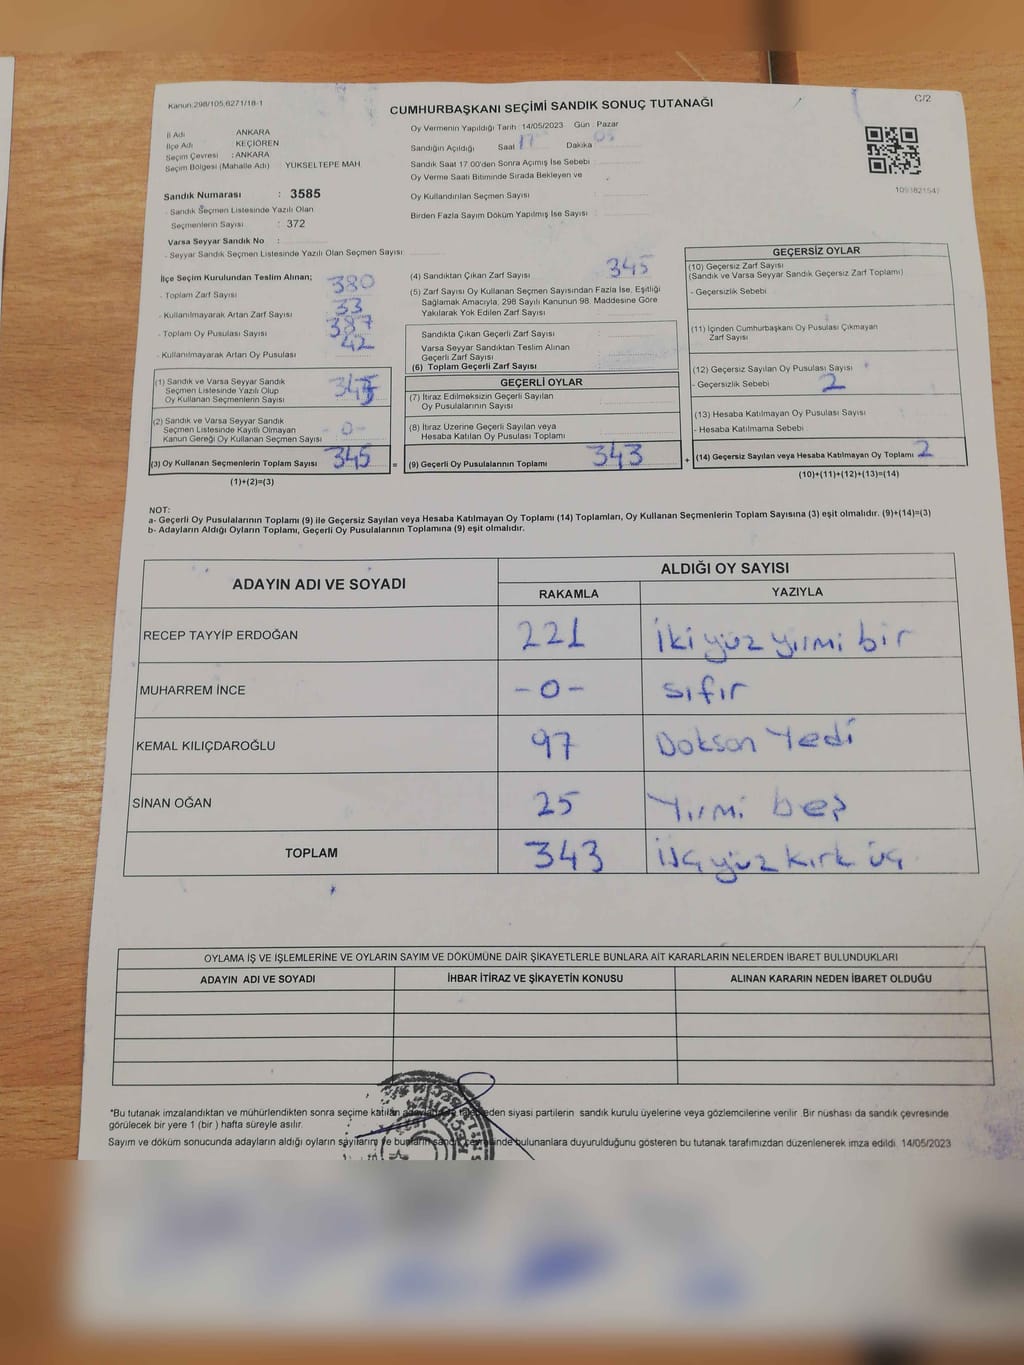 Kanun:298/105,6271/18-1
C/2
CUMHURBAŞKANI SEÇİMİ SANDIK SONUÇ TUTANAĞI
İl Adı ANKARA
İlçe Adı KEÇİÖREN
Seçim Çevresi : ANKARA
Seçim Bölgesi (Mahalle Adı) YÜKSELTEPE MAH
Sandık Numarası : 3585
- Sandık Seçmen Listesinde Yazılı Olan
Seçmenlerin Sayısı : 372
Varsa Seyyar Sandık No :
- Seyyar Sandık Seçmen Listesinde Yazılı Olan Seçmen Sayısı :
Oy Vermenin Yapıldığı Tarih 14/05/2023 Gün : Pazar
Sandığın Açıldığı Saat 17 Dakika 05
Sandık Saat 17.00'den Sonra Açımış İse Sebebi :
Oy Verme Saati Bitiminde Sırada Bekleyen ve
Oy Kullandırılan Seçmen Sayısı :
Birden Fazla Sayım Döküm Yapılmış İse Sayısı :
1093821547
İlçe Seçim Kurulundan Teslim Alınan;
- Toplam Zarf Sayısı 380
- Kullanılmayarak Artan Zarf Sayısı 33
- Toplam Oy Pusulası Sayısı 387
- Kullanılmayarak Artan Oy Pusulası 42
(1) Sandık ve Varsa Seyyar Sandık
Seçmen Listesinde Yazılı Olup
Oy Kullanan Seçmenlerin Sayısı 345
(2) Sandık ve Varsa Seyyar Sandık
Seçmen Listesinde Kayıtlı Olmayan
Kanun Gereği Oy Kullanan Seçmen Sayısı -0-
(3) Oy Kullanan Seçmenlerin Toplam Sayısı 345
(1)+(2)=(3)
(4) Sandıktan Çıkan Zarf Sayısı 345
(5) Zarf Sayısı Oy Kullanan Seçmen Sayısından Fazla İse, Eşitliği
Sağlamak Amacıyla, 298 Sayılı Kanunun 98. Maddesine Göre
Yakılarak Yok Edilen Zarf Sayısı
Sandıkta Çıkan Geçerli Zarf Sayısı
Varsa Seyyar Sandıktan Teslim Alınan
Geçerli Zarf Sayısı
(6) Toplam Geçerli Zarf Sayısı
GEÇERLİ OYLAR
(7) İtiraz Edilmeksizin Geçerli Sayılan
Oy Pusulalarının Sayısı
(8) İtiraz Üzerine Geçerli Sayılan veya
Hesaba Katılan Oy Pusulası Toplamı
= (9) Geçerli Oy Pusulalarının Toplamı 343
GEÇERSİZ OYLAR
(10) Geçersiz Zarf Sayısı
(Sandık ve Varsa Seyyar Sandık Geçersiz Zarf Toplamı)
- Geçersizlik Sebebi
(11) İçinden Cumhurbaşkanı Oy Pusulası Çıkmayan
Zarf Sayısı
(12) Geçersiz Sayılan Oy Pusulası Sayısı
- Geçersizlik Sebebi 2
(13) Hesaba Katılmayan Oy Pusulası Sayısı
- Hesaba Katılmama Sebebi
+ (14) Geçersiz Sayılan veya Hesaba Katılmayan Oy Toplamı 2
(10)+(11)+(12)+(13)=(14)
NOT:
a- Geçerli Oy Pusulalarının Toplamı (9) ile Geçersiz Sayılan veya Hesaba Katılmayan Oy Toplamı (14) Toplamları, Oy Kullanan Seçmenlerin Toplam Sayısına (3) eşit olmalıdır. (9)+(14)=(3)
b- Adayların Aldığı Oyların Toplamı, Geçerli Oy Pusulalarının Toplamına (9) eşit olmalıdır.
ADAYIN ADI VE SOYADI
ALDIĞI OY SAYISI
RAKAMLA YAZIYLA
RECEP TAYYİP ERDOĞAN 221 İki yüz yırmi bir
MUHARREM İNCE -0- sıfır
KEMAL KILIÇDAROĞLU 97 Doksan Yedi
SİNAN OĞAN 25 Yırmi beş
TOPLAM 343 üç yüz kırk üç
OYLAMA İŞ VE İŞLEMLERİNE VE OYLARIN SAYIM VE DÖKÜMÜNE DAİR ŞİKAYETLERLE BUNLARA AİT KARARLARIN NELERDEN İBARET BULUNDUKLARI
ADAYIN ADI VE SOYADI İHBAR İTİRAZ VE ŞİKAYETİN KONUSU ALINAN KARARIN NEDEN İBARET OLDUĞU
*Bu tutanak imzalandıktan ve mühürlendikten sonra seçime katılan eden siyasi partilerin sandık kurulu üyelerine veya gözlemcilerine verilir. Bir nüshası da sandık çevresinde
görülecek bir yere 1 (bir ) hafta süreyle asılır.
Sayım ve döküm sonucunda adayların aldığı oyların sayılarını ve bunların sandık bulunanlara duyurulduğunu gösteren bu tutanak tarafımızdan düzenlenerek imza edildi. 14/05/2023